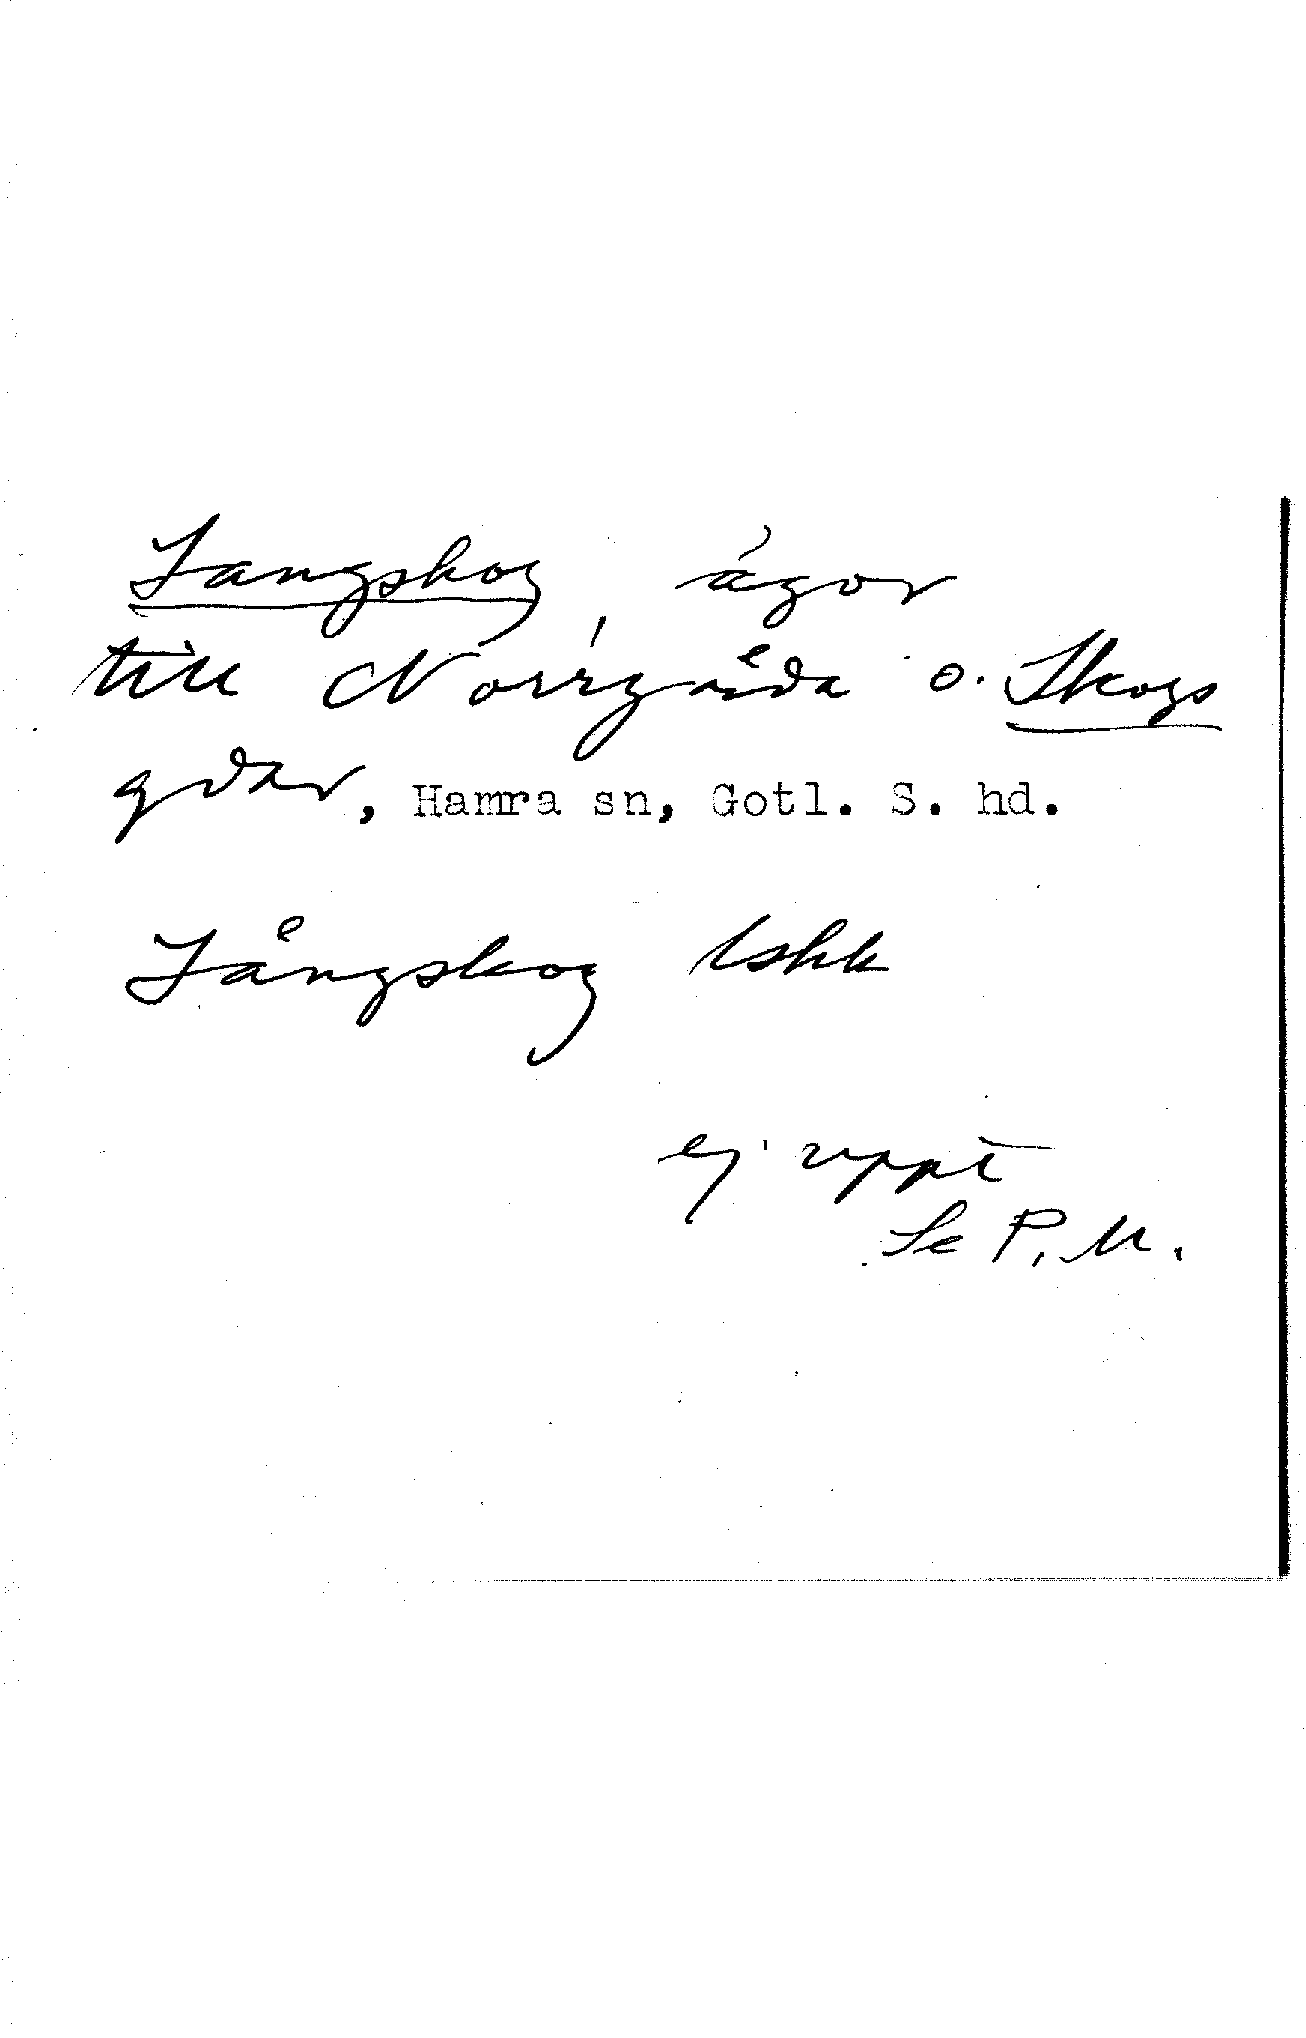 Langskog, ägor
till Norrgårda o. Skogs
gdar, Hamra sn, Gotl. S. hd.
Långskog lshk
ej uppt
Se P.M.